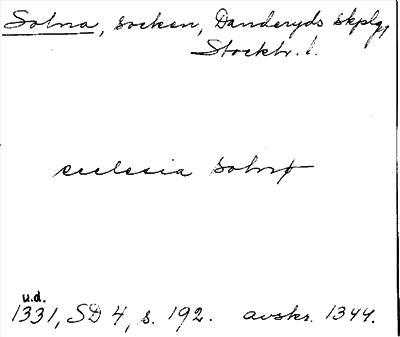 Solna, socken, Danderyds skplg,
Stockh. l.
ecclesia Solnø
u.d.
1331, SD 4, s. 192. avskr. 1344.